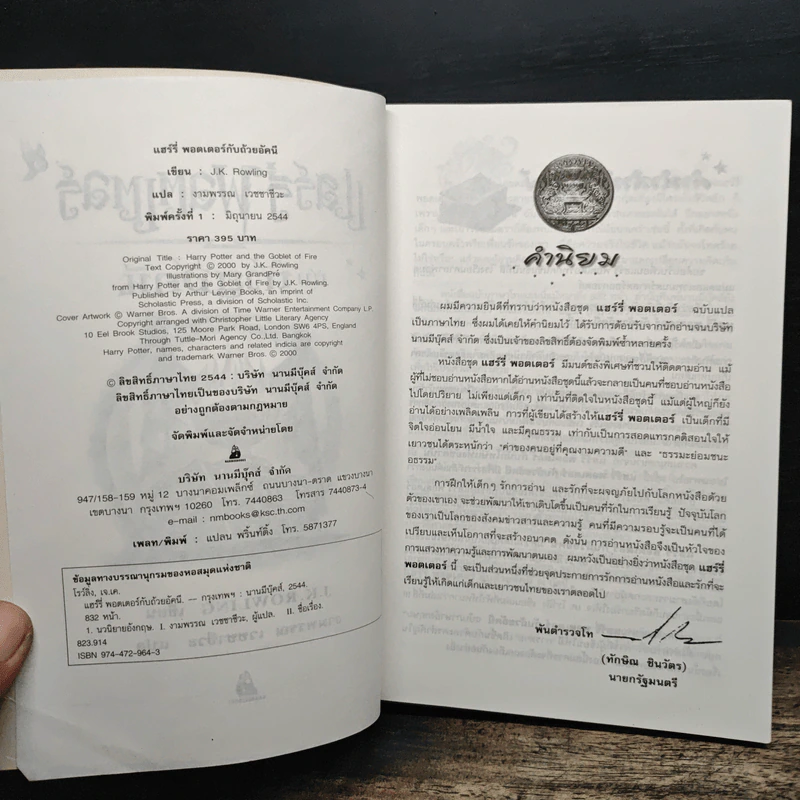 แฮร์รี่ พอตเตอร์กับถ้วยอัคนี
เขียน : J.K. Rowling
แปล : งามพรรณ เวชชาชีวะ
พิมพ์ครั้งที่ 1 : มิถุนายน 2544
ราคา 395 บาท
Original Title : Harry Potter and the Goblet of Fire
Text Copyright © 2000 by J.K. Rowling
Illustrations by Mary GrandPré
from Harry Potter and the Goblet of Fire by J.K. Rowling.
Published by Arthur Levine Books, an imprint of
Scholastic Press, a division of Scholastic Inc.
Cover Artwork © Warner Bros. A division of Time Warner Entertainment Company L.P.
Copyright arranged with Christopher Little Literary Agency
10 Eel Brook Studios, 125 Moore Park Road, London SW6 4PS, England
Through Tuttle-Mori Agency Co.,Ltd. Bangkok
Harry Potter, names, characters and related indicia are copyright
and trademark Warner Bros. © 2000
© ลิขสิทธิ์ภาษาไทย 2544 : บริษัท นานมีบุ๊คส์ จำกัด
ลิขสิทธิ์ภาษาไทยเป็นของบริษัท นานมีบุ๊คส์ จำกัด
อย่างถูกต้องตามกฎหมาย
จัดพิมพ์และจัดจำหน่ายโดย
บริษัท นานมีบุ๊คส์ จำกัด
947/158-159 หมู่ 12 บางนาคอมเพล็กซ์ ถนนบางนา-ตราด แขวงบางนา
เขตบางนา กรุงเทพฯ 10260 โทร. 7440863 โทรสาร 7440873-4
e-mail : nmbooks@ksc.th.com
เพลท/พิมพ์ : แปลน พริ้นท์ติ้ง โทร. 5871377
ข้อมูลทางบรรณานุกรมของหอสมุดแห่งชาติ
โรว์ลิ่ง, เจ.เค.
แฮร์รี่ พอตเตอร์กับถ้วยอัคนี. — กรุงเทพฯ : นานมีบุ๊คส์, 2544.
832 หน้า.
1. นวนิยายอังกฤษ. I. งามพรรณ เวชชาชีวะ, ผู้แปล. II. ชื่อเรื่อง.
823.914
ISBN 974-472-964-3
คำนิยม
ผมมีความยินดีที่ทราบว่าหนังสือชุด แฮร์รี่ พอตเตอร์ ฉบับแปล
เป็นภาษาไทย ซึ่งผมได้เคยให้คำนิยมไว้ ได้รับการต้อนรับจากนักอ่านจนบริษัท
นานมีบุ๊คส์ จำกัด ซึ่งเป็นเจ้าของลิขสิทธิ์ต้องจัดพิมพ์ซ้ำหลายครั้ง
หนังสือชุด แฮร์รี่ พอตเตอร์ มีมนต์ขลังพิเศษที่ชวนให้ติดตามอ่าน แม้
ผู้ที่ไม่ชอบอ่านหนังสือหากได้อ่านหนังสือชุดนี้แล้วจะกลายเป็นคนที่ชอบอ่านหนังสือ
ไปโดยปริยาย ไม่เพียงแต่เด็กๆ เท่านั้นที่ติดใจในหนังสือชุดนี้ แม้แต่ผู้ใหญ่ก็ยัง
อ่านได้อย่างเพลิดเพลิน การที่ผู้เขียนได้สร้างให้แฮร์รี่ พอตเตอร์ เป็นเด็กที่มี
จิตใจอ่อนโยน มีน้ำใจ และมีคุณธรรม เท่ากับเป็นการสอดแทรกคติสอนใจให้
เยาวชนได้ตระหนักว่า “ค่าของคนอยู่ที่คุณงามความดี” และ “ธรรมะย่อมชนะ
อธรรม”
การฝึกให้เด็กๆ รักการอ่าน และรักที่จะผจญภัยไปกับโลกหนังสือด้วย
ตัวของเขาเอง จะช่วยพัฒนาให้เขาเติบโตขึ้นเป็นคนที่รักในการเรียนรู้ ปัจจุบันโลก
ของเราเป็นโลกของสังคมข่าวสารและความรู้ คนที่มีความรอบรู้จะเป็นคนที่ได้
เปรียบและเห็นโอกาสที่จะสร้างอนาคต ดังนั้น การอ่านหนังสือจึงเป็นหัวใจของ
การแสวงหาความรู้และการพัฒนาตนเอง ผมหวังเป็นอย่างยิ่งว่าหนังสือชุด แฮร์รี่
พอตเตอร์ นี้ จะเป็นส่วนหนึ่งที่ช่วยจุดประกายการรักการอ่านหนังสือและรักที่จะ
เรียนรู้ให้เกิดแก่เด็กและเยาวชนไทยของเราตลอดไป
พันตำรวจโท
(ทักษิณ ชินวัตร)
นายกรัฐมนตรี